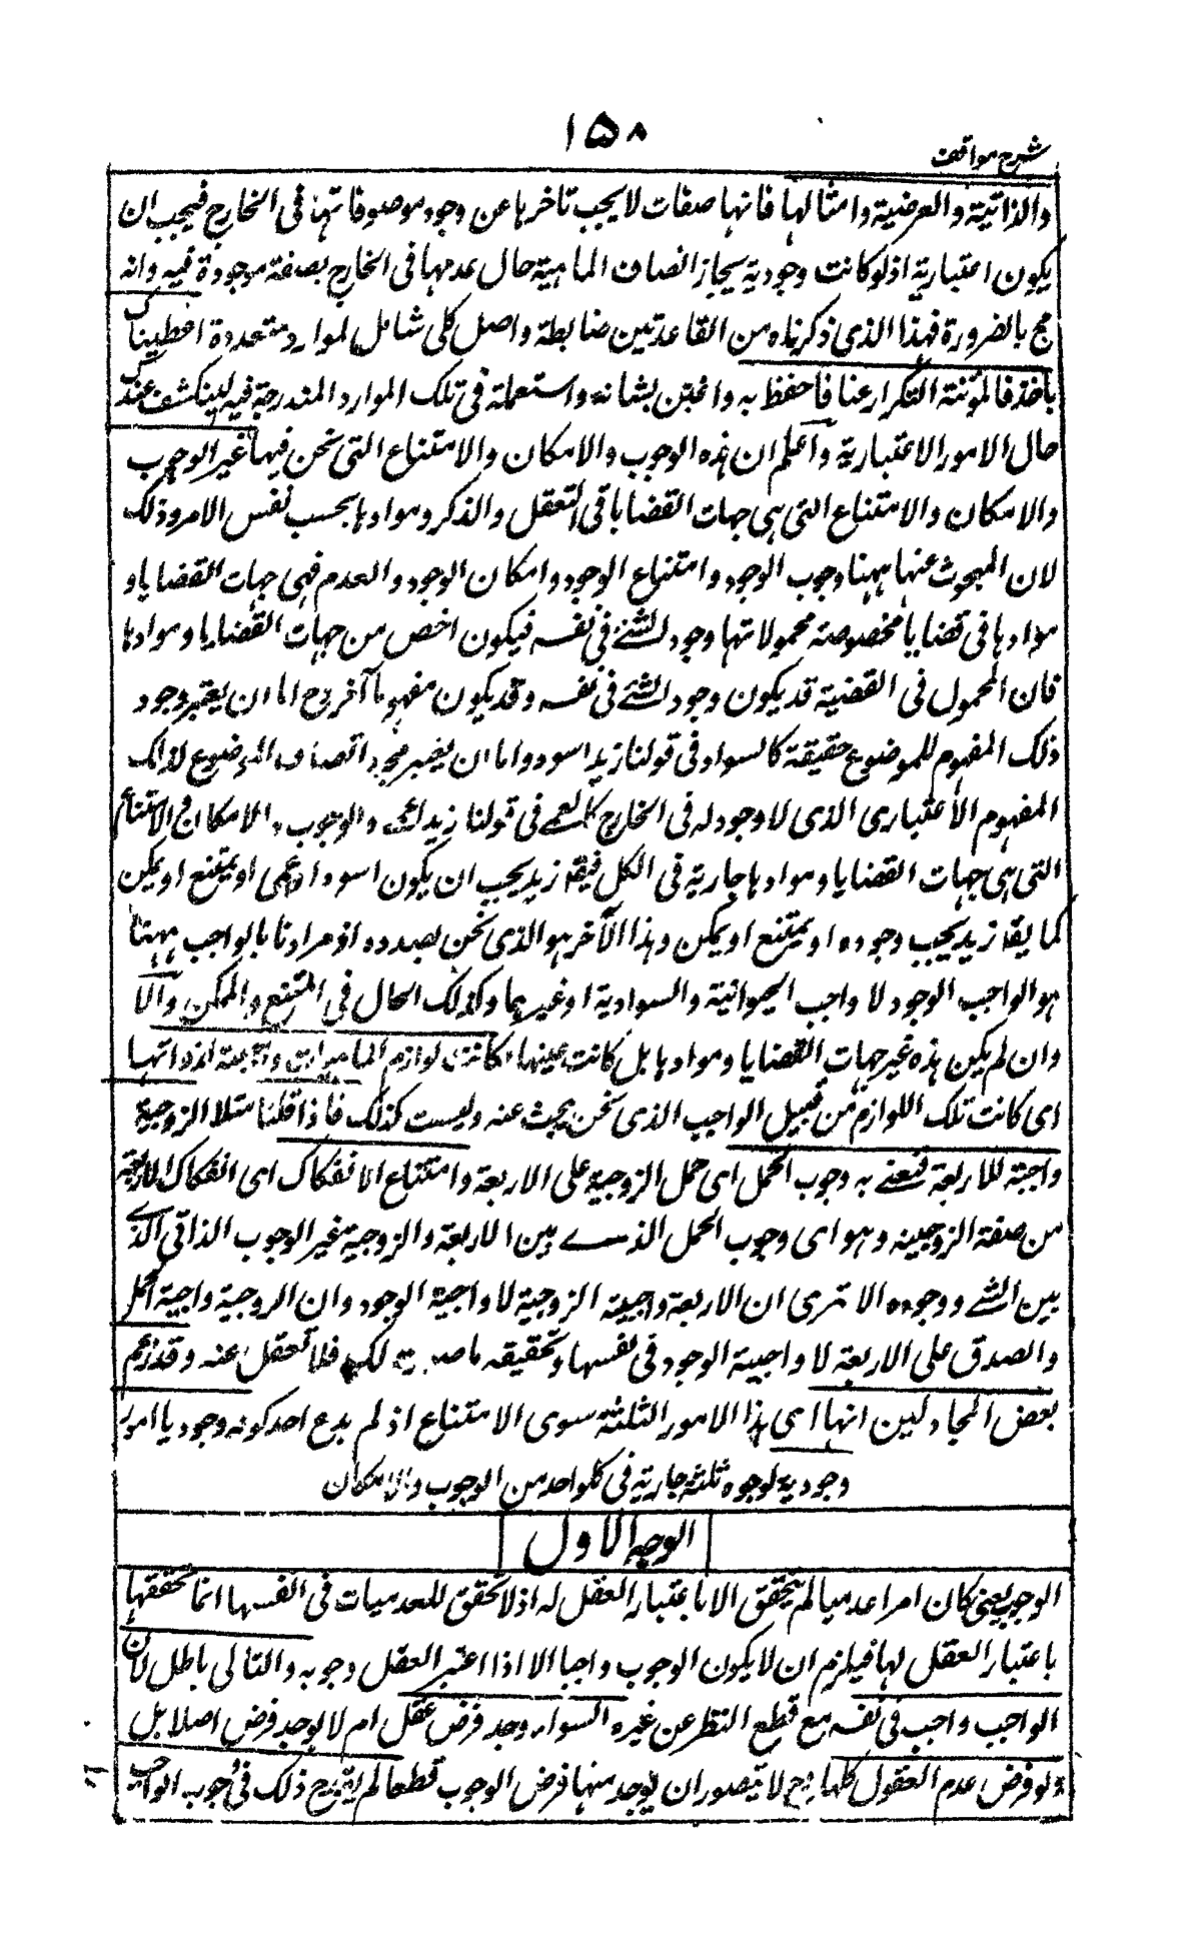 ١٥٨
شرح مواقف
والذاتية والعرضية وامثالها فانها صفات لا يجب تاخرها عن وجود موصوفاتها فى الخارج فيجب ان
يكون اعتبارية اذ لو كانت وجودية لجاز اتصاف الماهية حال عدمها فى الخارج بصفة موجودة فيه وانه
مح بالضرورة فهذا الذى ذكرناه من القاعدتين ضابطة واصل كلى شامل لموارد متعددة اعطيناك
باخذفا لمؤنة التكرار عنا فاحفظ به واعتن بشانه واستعمله فى تلك الموارد المندرجة فيه لينكشف عندك
حال الامور الاعتبارية واعلم ان هذه الوجوب والامكان والامتناع التى نحن فيها غير الوجوب
والامكان والامتناع التى هى جهات القضايا فى التعقل والذكر وموادها بحسب نفس الامر وذلك
لان المبحوث عنها ههنا وجوب الوجود وامتناع الوجود وامكان الوجود والعدم فهى جهات القضايا و
موادها فى قضايا مخصوصة محمولاتها وجود الشئ فى نفسه فيكون اخص من جهات القضايا وموادها
فان المحمول فى القضية قد يكون وجود الشئ فى نفسه وقد يكون مفهوما آخر وح اما ان يعتبر وجود
ذلك المفهوم للموضوع حقيقة كالسواد فى قولنا زيد اسود واما ان يعتبر مجرد اتصاف الموضوع لذلك
المفهوم الاعتبارى الذى لا وجود له فى الخارج كالعمى فى قولنا زيد اعمى والوجوب والامكان والامتناع
التى هى جهات القضايا وموادها جارية فى الكل فيقا زيد يجب ان يكون اسود او اعمى او يمتنع او يمكن
كما يقا زيد يجب وجوده او يمتنع او يمكن وهذا الآخر هو الذى نحن بصدده اذ مرادنا بالواجب ههنا
هو الواجب الوجود لا واجب الحيوانية والسوادية او غيرهما وكذلك الحال فى الممتنع والممكن والا
وان لم يكن هذه غير جهات القضايا وموادها بل كانت عينها لكانت لوازم الماهيات واجبة لذواتها
اى كانت تلك اللوازم من قبيل الواجب الذى نحن نبحث عنه وليست كذلك فاذا قلنا مثلا الزوجية
واجبة للاربعة فنعنى به وجوب الحمل اى حمل الزوجية على الاربعة وامتناع الانفكاك اى انفكاك الاربعة
من صفة الزوجية وهو اى وجوب الحمل الذى بين الاربعة والزوجية غير الوجوب الذاتى الذى
بين الشئ ووجوده الا ترى ان الاربعة واجبة الزوجية لا واجبة الوجود وان الزوجية واجبة الحمل
والصدق على الاربعة لا واجبة الوجود فى نفسها وتحقيقه ما صورت لك فلا تعقل عنه وقد زعم
بعض المجادلين انها اى هذا الامور الثلثة سوى الامتناع اذ لم يدع احد كونه وجوديا امور
وجودية لوجوه ثلثة جارية فى كلواحد من الوجوب والامكان
الوجه الاول
الوجوب يعنى كان امرا عدميا لم يتحقق الا باعتبار العقل له اذ لا تحقق للعدميات فى انفسها انما تحققها
باعتبار العقل لها فيلزم ان لا يكون الوجوب واجبا الا اذا اعتبر العقل وجوبه والتالى باطل لان
الواجب واجب فى نفسه مع قطع النظر عن غيره السواء وجد فرض عقل ام لا يوجد فرض اصلا بل
ولو فرض عدم العقول كلها وح لا يتصور ان يوجد منها فرض الوجوب قطعا لم يقدح ذلك فى وجوب الواجب